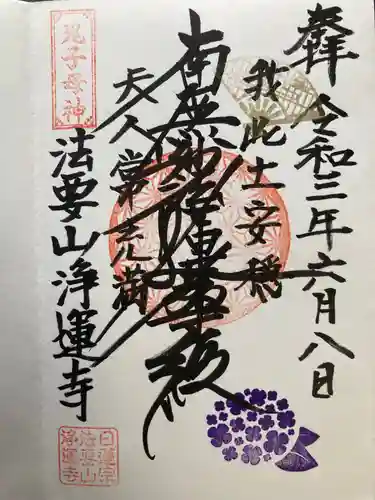 奉拝
令和三年六月八日
我此土安穏
南無妙法蓮華経
天人常充満
鬼子母神
法要山浄運寺
日蓮宗
法要山
浄運寺